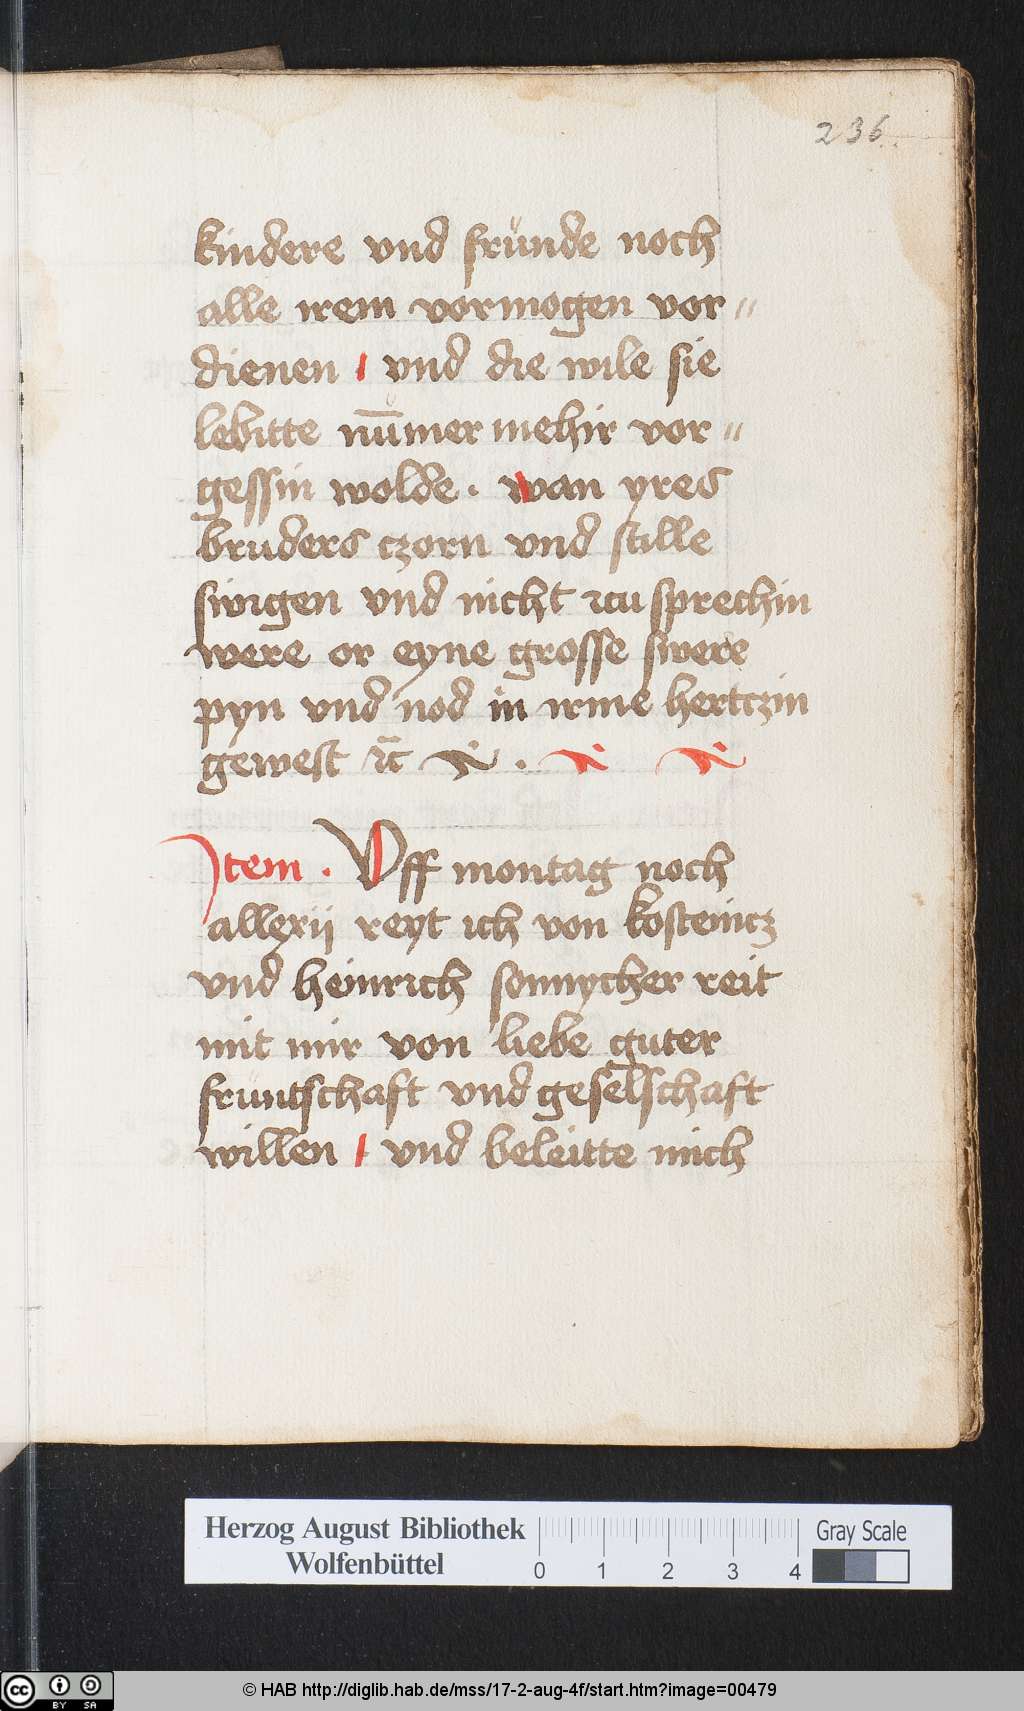 236
kindere vnd fründe noch
alle irem vormogen vor〃
dienen vnd die wile sie
lebitte nu̅mer mehir vor〃
gessin wolde. wan yres
bruders czorn vnd stille
swigen vnd nicht zcu sprechin
were or eyne grosse swere
pyn vnd nod in irme hertczin
gewest ꝛc̅
Item. Vff montag noch
allexii reyt ich von kosteincz
vnd heinrich sonnycher reit
mit mir von liebe guter
fruntschaft vnd geselschaft
willen vnd beleitte mich
Herzog August Bibliothek
Wolfenbüttel
0 1 2 3 4
Gray Scale
cc BY SA
© HAB http://diglib.hab.de/mss/17-2-aug-4f/start.htm?image=00479